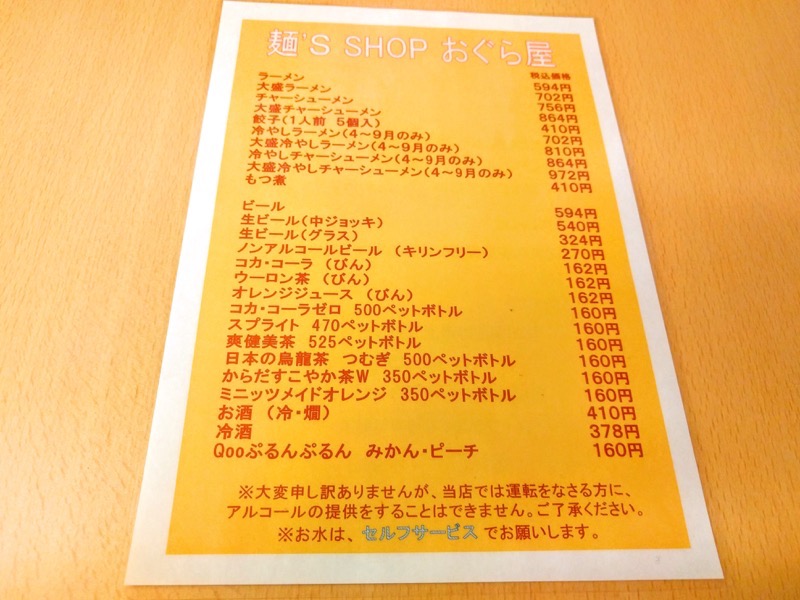 麺'S SHOP おぐら屋
税込価格
ラーメン 594円
大盛ラーメン 702円
チャーシューメン 756円
大盛チャーシューメン 864円
餃子(1人前 5個入) 410円
冷やしラーメン(4～9月のみ) 702円
大盛冷やしラーメン(4～9月のみ) 810円
冷やしチャーシューメン(4～9月のみ) 864円
大盛冷やしチャーシューメン(4～9月のみ) 972円
もつ煮 410円
ビール 594円
生ビール(中ジョッキ) 540円
生ビール(グラス) 324円
ノンアルコールビール (キリンフリー) 270円
コカ・コーラ (びん) 162円
ウーロン茶 (びん) 162円
オレンジジュース (びん) 162円
コカ・コーラゼロ 500ペットボトル 160円
スプライト 470ペットボトル 160円
爽健美茶 525ペットボトル 160円
日本の烏龍茶 つむぎ 500ペットボトル 160円
からだすこやか茶W 350ペットボトル 160円
ミニッツメイドオレンジ 350ペットボトル 160円
お酒 (冷・燗) 410円
冷酒 378円
Qooぷるんぷるん みかん・ピーチ 160円
※大変申し訳ありませんが、当店では運転をなさる方に、
アルコールの提供をすることはできません。ご了承ください。
※お水は、セルフサービスでお願いします。